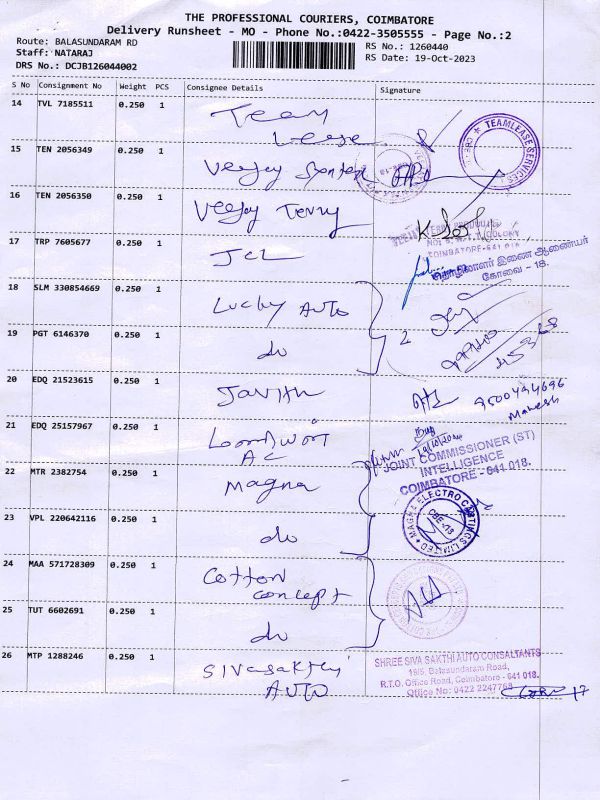 THE PROFESSIONAL COURIERS, COIMBATORE
Delivery Runsheet - MO - Phone No.:0422-3505555 - Page No.:2
Route: BALASUNDARAM RD
Staff: NATARAJ
DRS No.: DCJB126044002
RS No.: 1260440
RS Date: 19-Oct-2023
S No Consignment No Weight PCS Consignee Details Signature
14 TVL 7185511 0.250 1 Team
Lease
TEAMLEASE SERVICES
15 TEN 2056349 0.250 1 Veejay
16 TEN 2056350 0.250 1 Veejay Terry
COIMBATORE-641 018
17 TRP 7605677 0.250 1 JCL
இணை ஆணையர்
கோவை - 18.
18 SLM 330854669 0.250 1 Lucky Auto
19 PGT 6146370 0.250 1 do
2
20 EDQ 21523615 0.250 1
9500494696
Mahesh
21 EDQ 25157967 0.250 1
AC
JOINT COMMISSIONER (ST)
INTELLIGENCE
COIMBATORE - 641 018.
22 MTR 2382754 0.250 1 Magna
MAGNA ELECTRO CASTINGS LIMITED
CBE-18
23 VPL 220642116 0.250 1 do
24 MAA 571728309 0.250 1 Cotton
concept
25 TUT 6602691 0.250 1 do
26 MTP 1288246 0.250 1 Sivasakthy
AUTO
SHREE SIVA SAKTHI AUTO CONSALTANTS
19/5, Balasundaram Road,
R.T.O. Office Road, Coimbatore - 641 018.
Office No: 0422 2247768